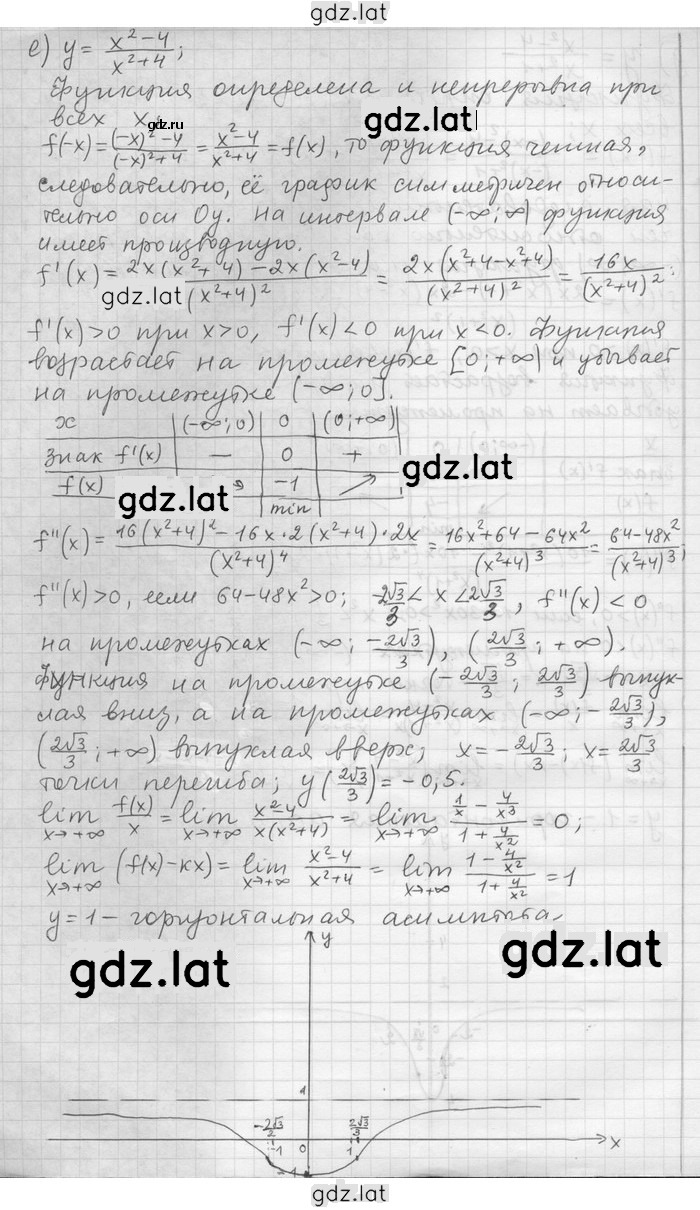 gdz.lat
е) y = (x² − 4)/(x² + 4);
Функция определена и непрерывна при
всех x.
gdz.ru
gdz.lat
f(-x) = ((-x)² − 4)/((-x)² + 4) = (x² − 4)/(x² + 4) = f(x), то функция четная,
следовательно, её график симметричен относи-
тельно оси Oy. На интервале (-∞; ∞) функция
имеет производную.
f'(x) = (2x(x² + 4) − 2x(x² − 4))/(x² + 4)² = (2x(x² + 4 − x² + 4))/(x² + 4)² = 16x/(x² + 4)²;
gdz.lat
f'(x) > 0 при x > 0, f'(x) < 0 при x < 0. Функция
возрастает на промежутке [0; +∞) и убывает
на промежутке (-∞; 0].
x | (-∞; 0) | 0 | (0; +∞)
Знак f'(x) | − | 0 | +
f(x) | | −1 | ↗
min
gdz.lat
gdz.lat
f''(x) = (16(x² + 4)² − 16x · 2(x² + 4) · 2x)/(x² + 4)⁴ = (16x² + 64 − 64x²)/(x² + 4)³ = (64 − 48x²)/(x² + 4)³;
f''(x) > 0, если 64 − 48x² > 0; -2√3/3 < x < 2√3/3, f''(x) < 0
на промежутках (-∞; -2√3/3), (2√3/3; +∞).
Функция на промежутке (-2√3/3; 2√3/3) выпук-
лая вниз, а на промежутках (-∞; -2√3/3),
(2√3/3; +∞) выпуклая вверх; x = -2√3/3; x = 2√3/3
точки перегиба; y(2√3/3) = -0,5.
lim x→+∞ f(x)/x = lim x→+∞ (x² − 4)/(x(x² + 4)) = lim x→+∞ (1/x − 4/x³)/(1 + 4/x²) = 0;
lim x→+∞ (f(x) − kx) = lim x→+∞ (x² − 4)/(x² + 4) = lim x→+∞ (1 − 4/x²)/(1 + 4/x²) = 1
y = 1 − горизонтальная асимптота.
gdz.lat
gdz.lat
y
1
-2√3/2
2√3/3
-1
0
1
x
-1
gdz.lat